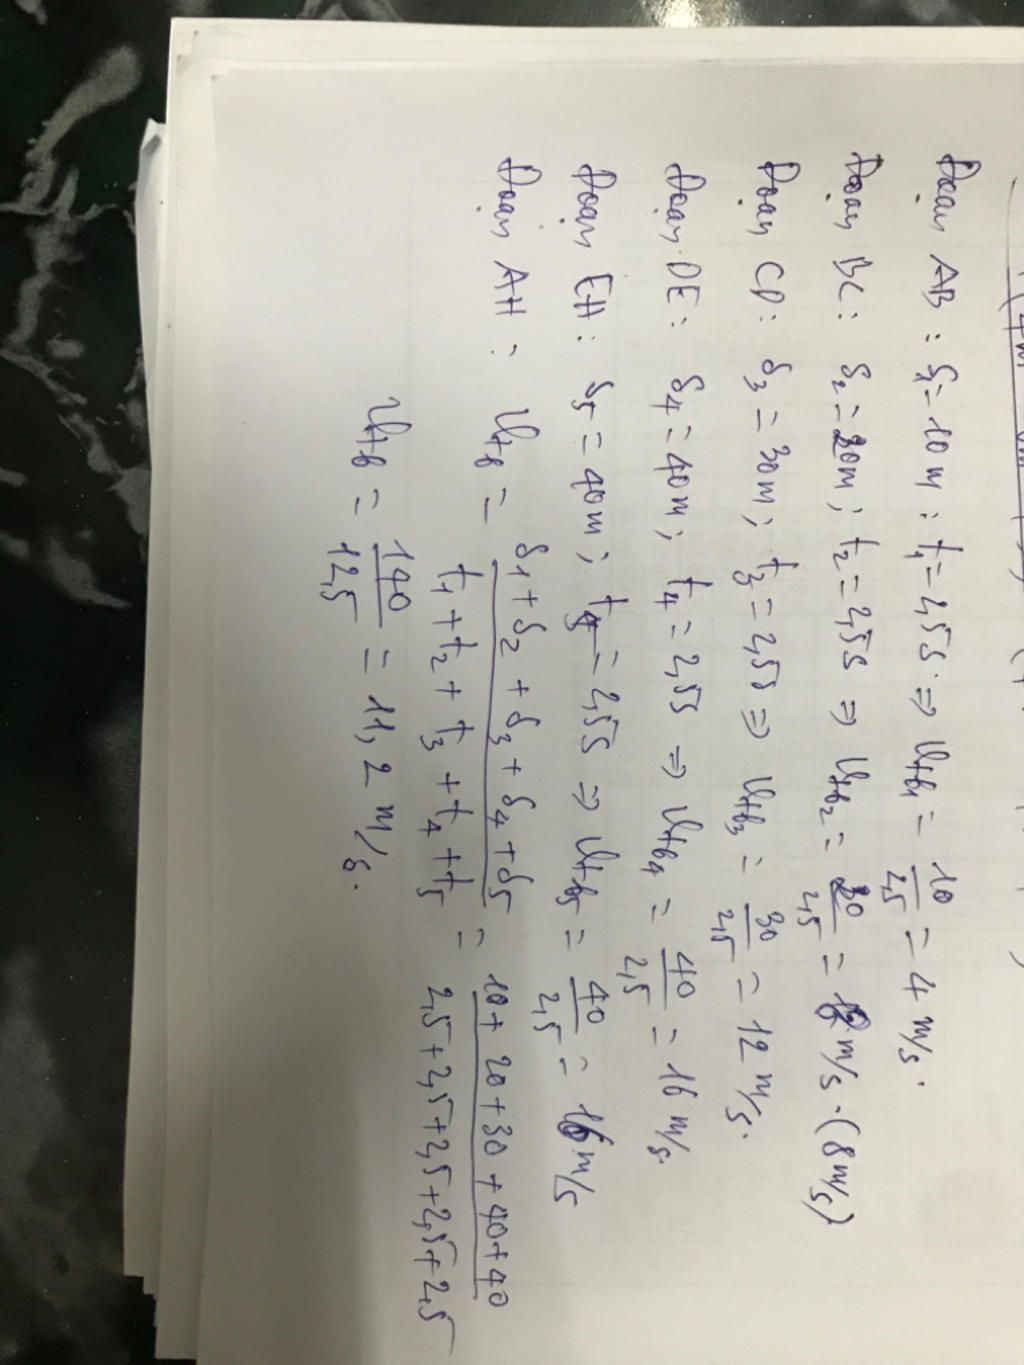 Đoạn AB : S1 = 10m ; t1 = 2,5s ⇒ Vtb1 = 10/2,5 = 4 m/s.
Đoạn BC : S2 = 20m ; t2 = 2,5s ⇒ Vtb2 = 20/2,5 = 8 m/s. (8m/s)
Đoạn CD : S3 = 30m ; t3 = 2,5s ⇒ Vtb3 = 30/2,5 = 12 m/s.
Đoạn DE : S4 = 40m ; t4 = 2,5s ⇒ Vtb4 = 40/2,5 = 16 m/s.
Đoạn EH : S5 = 40m ; t5 = 2,5s ⇒ Vtb5 = 40/2,5 = 16 m/s
Đoạn AH : Vtb = S1 + S2 + S3 + S4 + S5 / t1 + t2 + t3 + t4 + t5 = 10 + 20 + 30 + 40 + 40 / 2,5 + 2,5 + 2,5 + 2,5 + 2,5
Vtb = 140/12,5 = 11,2 m/s.